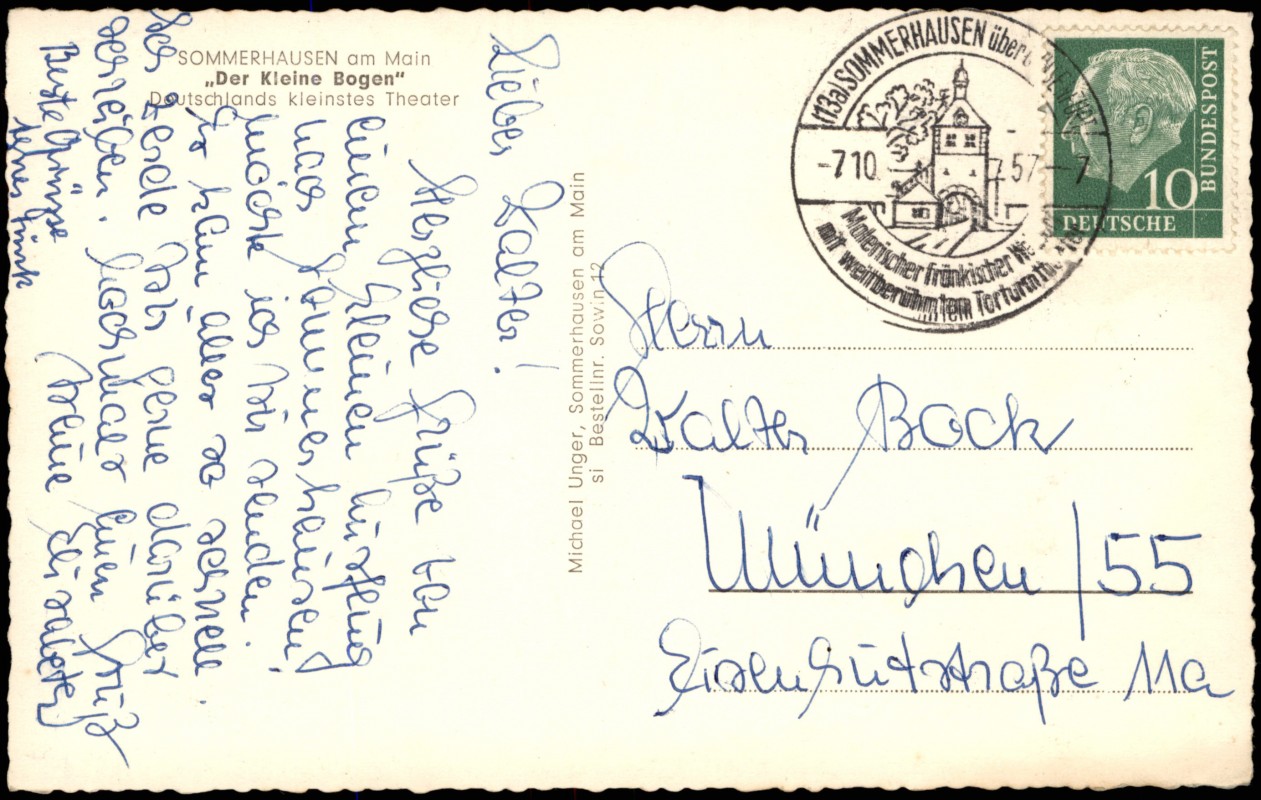 SOMMERHAUSEN am Main
„Der Kleine Bogen“
Deutschlands kleinstes Theater
Lieber Walter!
Herzliche Grüße von
einem kleinen Ausflug
nach Sommerhausen
möchte ich Dir senden.
Es kam alles so schnell.
Ich werde Dir gerne darüber
schreiben. Nochmals einen Gruß
Deine Elisabeth
Beste Grüsse
Michael Unger, Sommerhausen am Main
si Bestellnr. Sowin 12
(13a) SOMMERHAUSEN über OCHSENFURT
-7.10. 57-7
Malerischer fränkischer
mit weitberühmtem Torturmtheater
DEUTSCHE
BUNDESPOST
10
Herrn
Walter Bock
München /55
Eisenhutstraße 11a